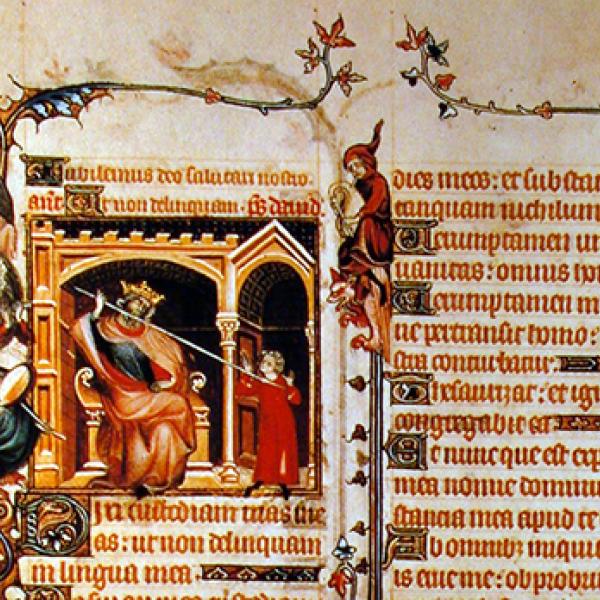 Jubilemus deo salutari nostro.
añt. Ut non delinquam. p̃s dauid.
Dixi custodiam uias me
as: ut non delinquam
in lingua mea.
dies meos: et substan
tanquam nichilum
Uerumptamen un
uanitas: omnis
Uerumptamen in
ne pertransit homo:
stra conturbatur.
Thesaurizat: et ig
congregabit ea
Et nunc que est exp
mea nonne dominus
stancia mea apud te
Ab omnibus iniqui
is erue me: obprobri